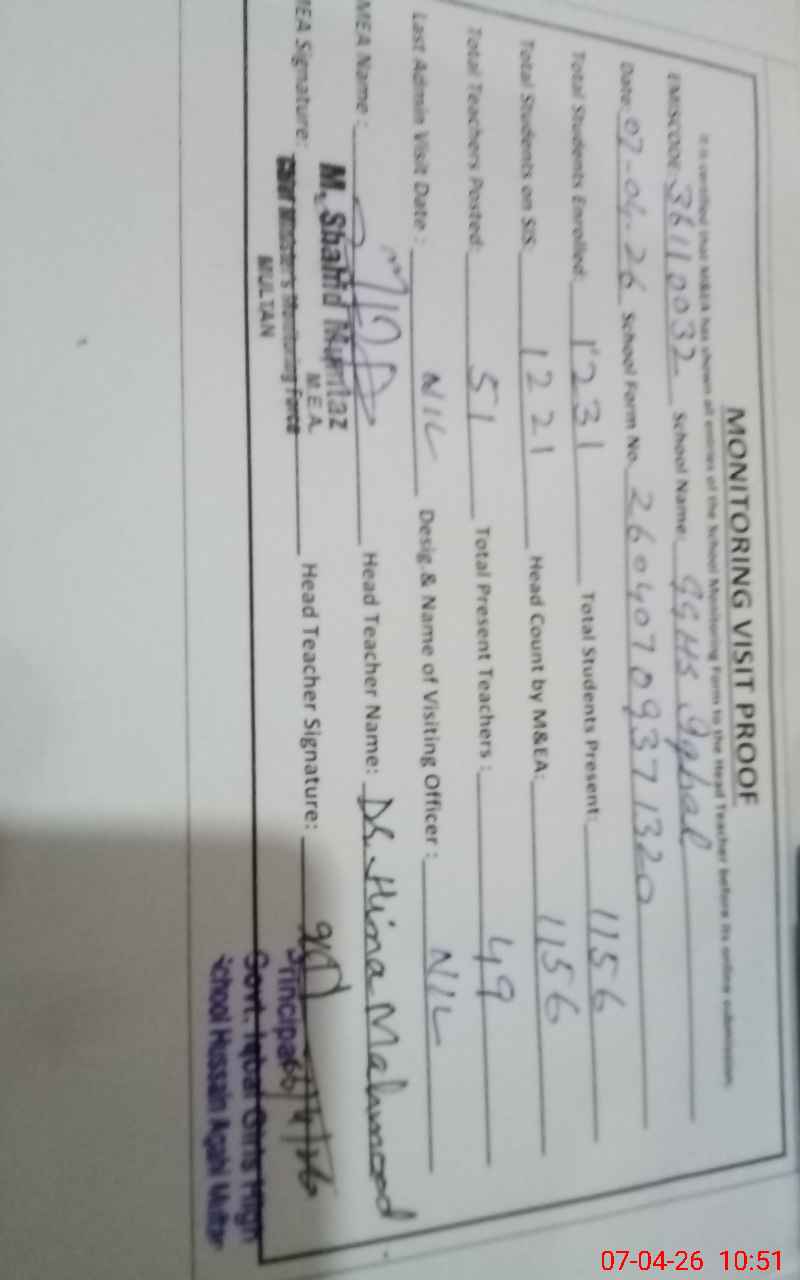 MONITORING VISIT PROOF
It is certified that M&EA has shown all entries of the School Monitoring Form to the Head Teacher before its online submission.
EMISCODE: 36110032 School Name: GGHS Iqbal
Date: 07-04-26 School Form No. 26040709371320
Total Students Enrolled: 1231 Total Students Present: 1156
Total Students on SIS: 1221 Head Count by M&EA: 1156
Total Teachers Posted: 51 Total Present Teachers: 49
Last Admin Visit Date: NIL Desig & Name of Visiting Officer: NIL
MEA Name: Head Teacher Name: Dr. Hina Mahmood
MEA Signature: Head Teacher Signature:
M. Shahid Mumtaz
M.E.A.
Chief Minister's Monitoring Force
MULTAN
Principal
Govt. Iqbal Girls High
School Hussain Agahi Multan
07-04-26 10:51